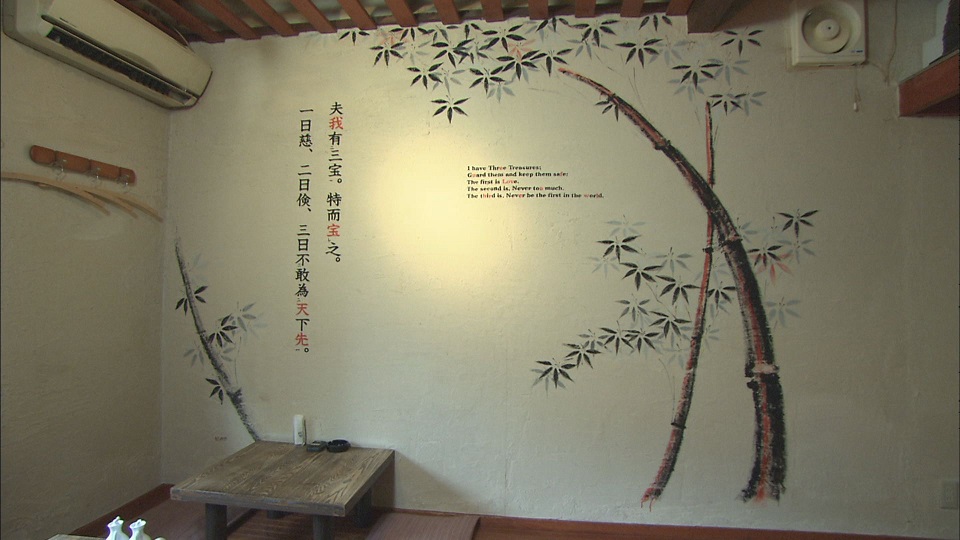 夫我有三宝。特而宝之。
一日慈、二日倹、三日不敢為天下先。
I have Three Treasures;
Guard them and keep them safe:
The first is Love.
The second is, Never too much.
The third is, Never be the first in the world.